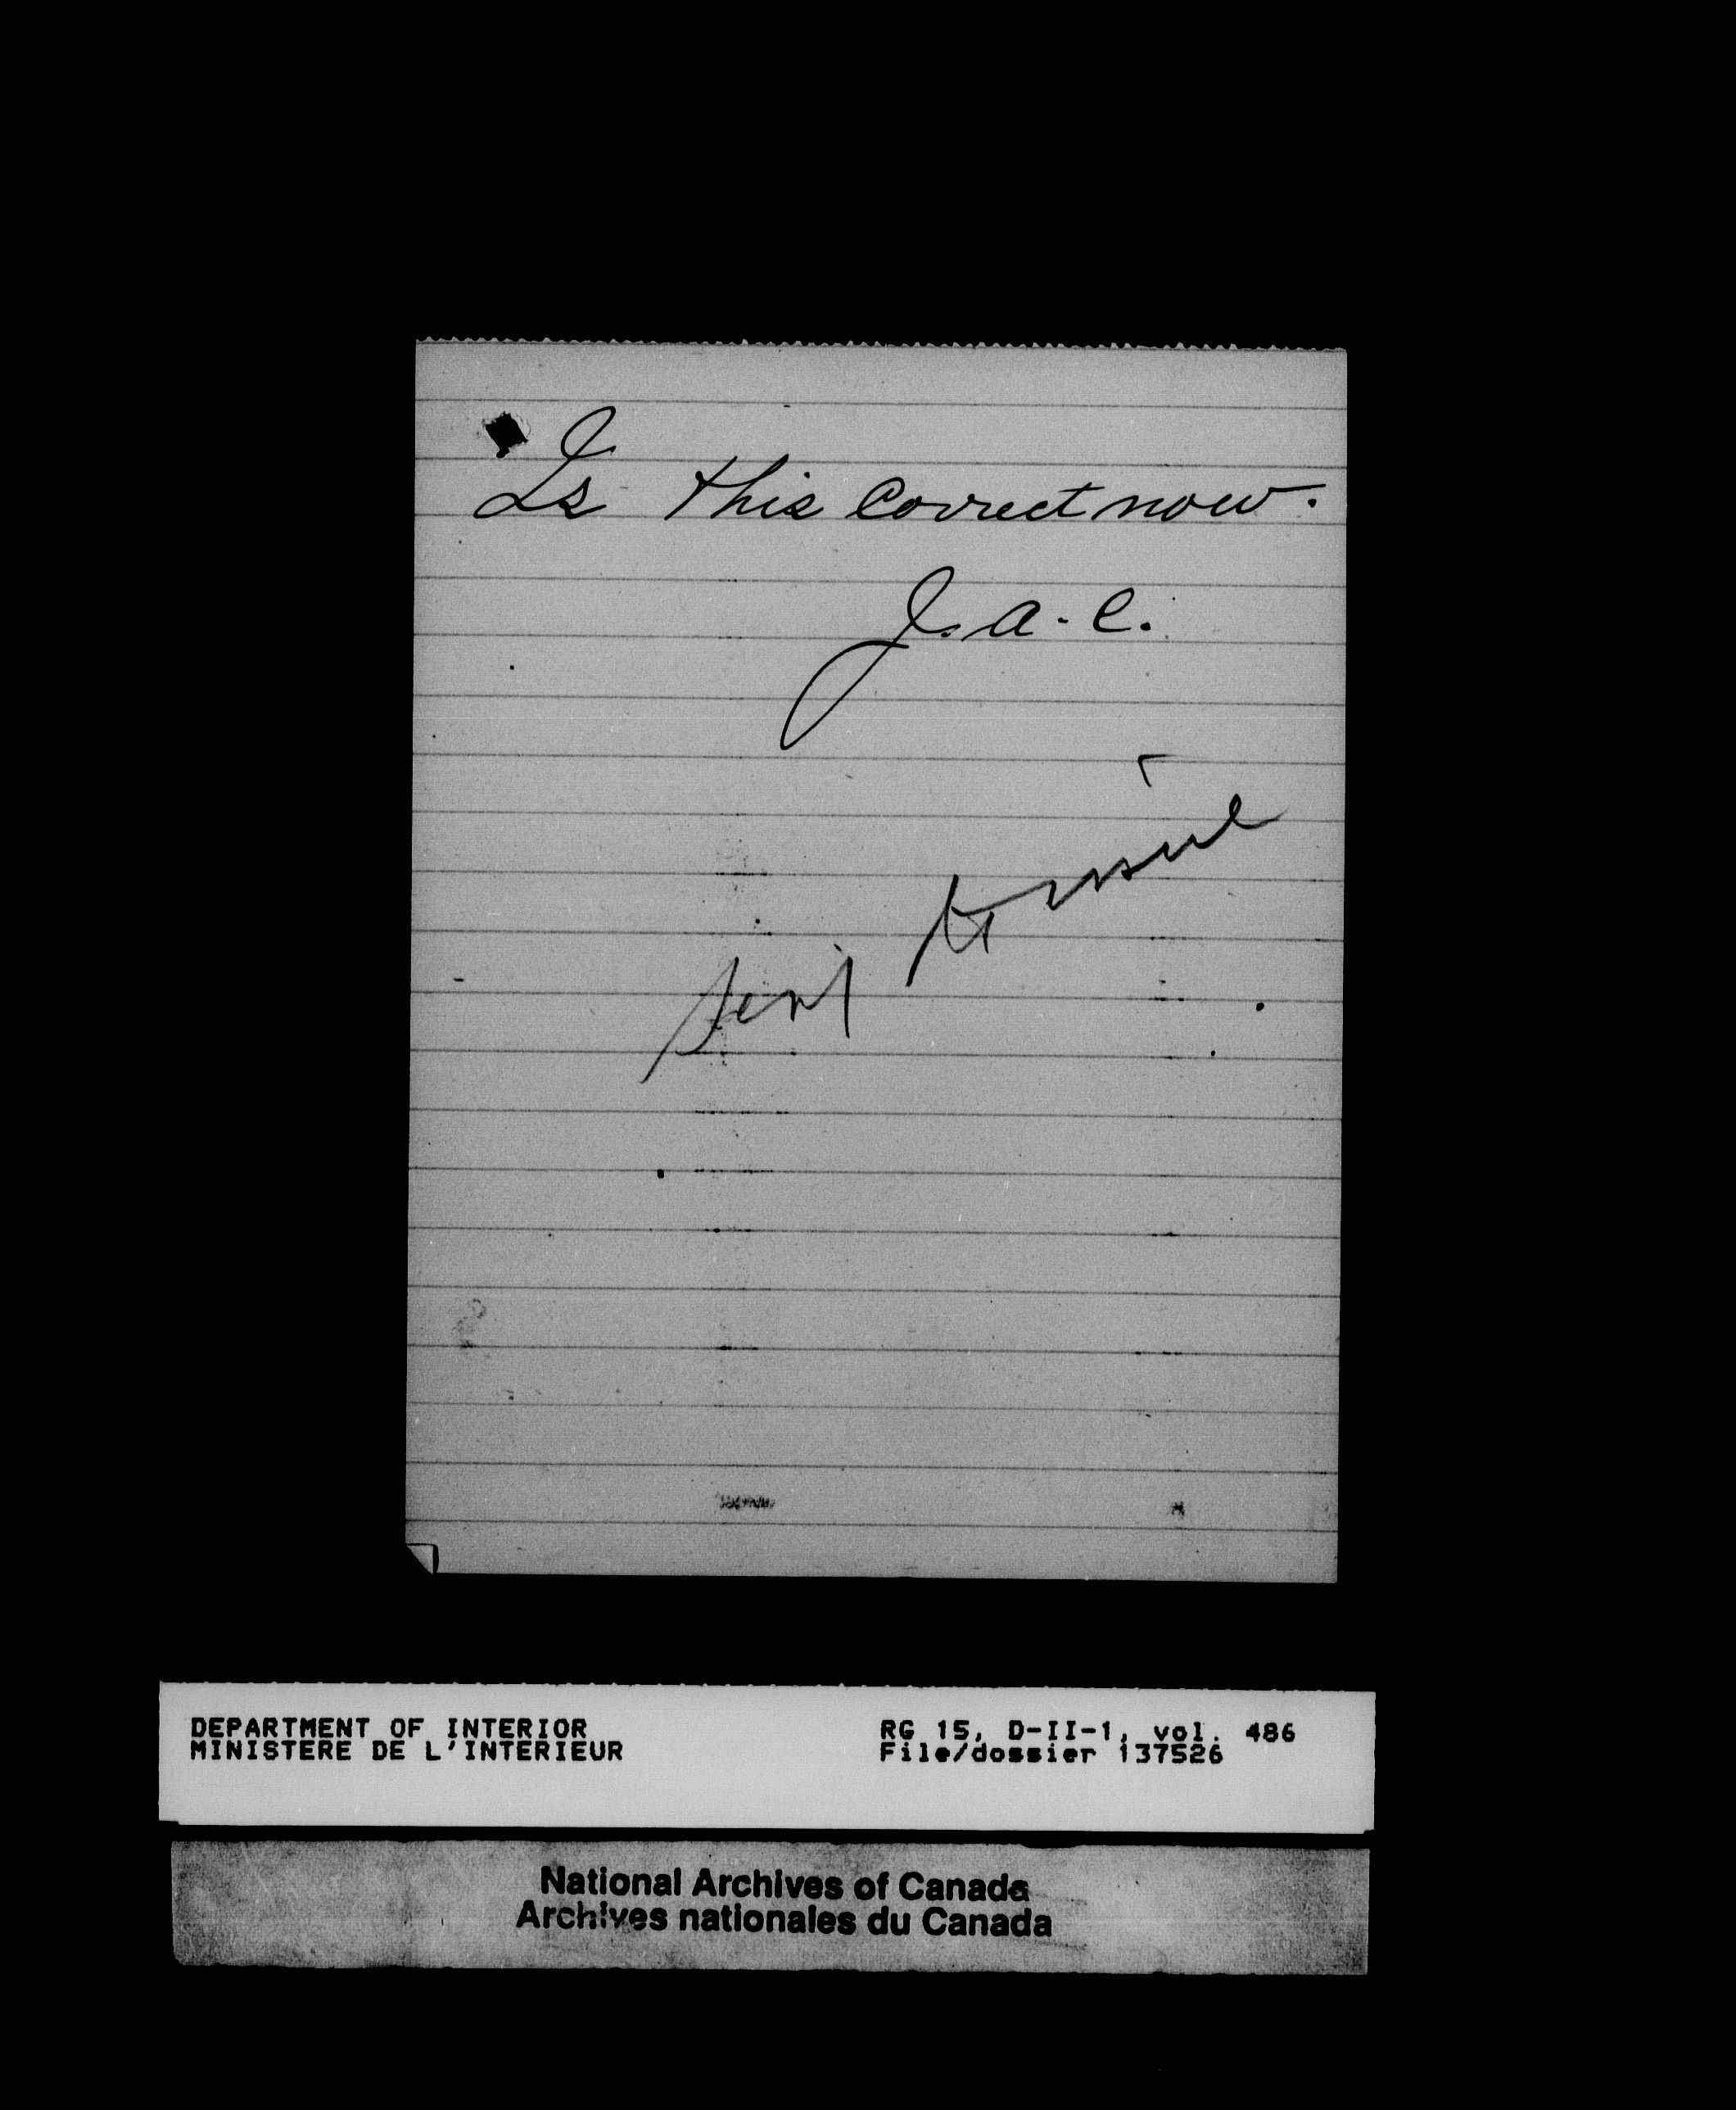 Is this correct now.
J. A. C.
sent to
DEPARTMENT OF INTERIOR
MINISTERE DE L'INTERIEUR
RG 15, D-II-1, vol. 486
File/dossier 137526
National Archives of Canada
Archives nationales du Canada